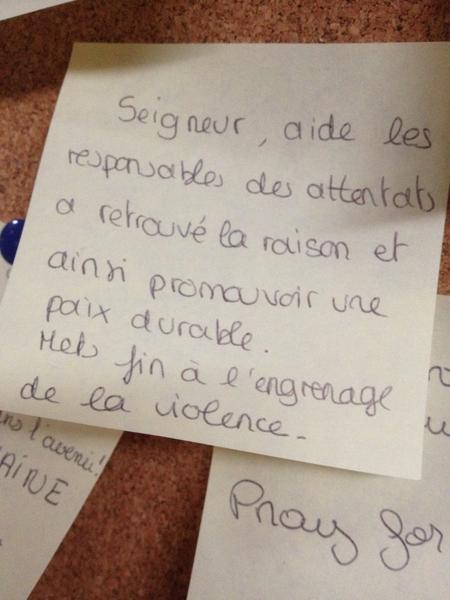 Seigneur, aide les
responsables des attentats
a retrouvé la raison et
ainsi promouvoir une
paix durable.
Mets fin à l'engrenage
de la violence.
ans l'avenir!
AINE
Pray for